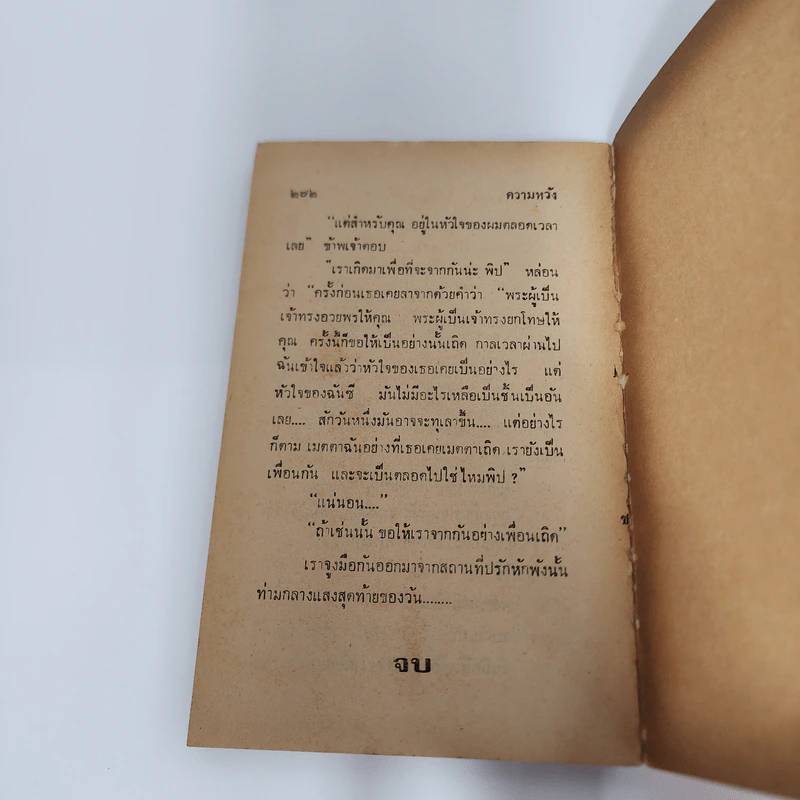 ๒๗๒ ความหวัง
"แต่สำหรับคุณ อยู่ในหัวใจของผมตลอดเวลา
เลย" ข้าพเจ้าตอบ
"เราเกิดมาเพื่อที่จะจากกันน่ะ พิป" หล่อน
ว่า "ครั้งก่อนเธอเคยลาจากด้วยคำว่า "พระผู้เป็น
เจ้าทรงอวยพรให้คุณ พระผู้เป็นเจ้าทรงยกโทษให้
คุณ ครั้งนี้ก็ขอให้เป็นอย่างนั้นเถิด กาลเวลาผ่านไป
ฉันเข้าใจแล้วว่าหัวใจของเธอเคยเป็นอย่างไร แต่
หัวใจของฉันซี มันไม่มีอะไรเหลือเป็นชิ้นเป็นอัน
เลย.... สักวันหนึ่งมันอาจจะทุเลาขึ้น.... แต่อย่างไร
ก็ตาม เมตตาฉันอย่างที่เธอเคยเมตตาเถิด เรายังเป็น
เพื่อนกัน และจะเป็นตลอดไปใช่ไหมพิป ?"
"แน่นอน...."
"ถ้าเช่นนั้น ขอให้เราจากกันอย่างเพื่อนเถิด"
เราจูงมือกันออกมาจากสถานที่ปรักหักพังนั้น
ท่ามกลางแสงสุดท้ายของวัน........
จบ